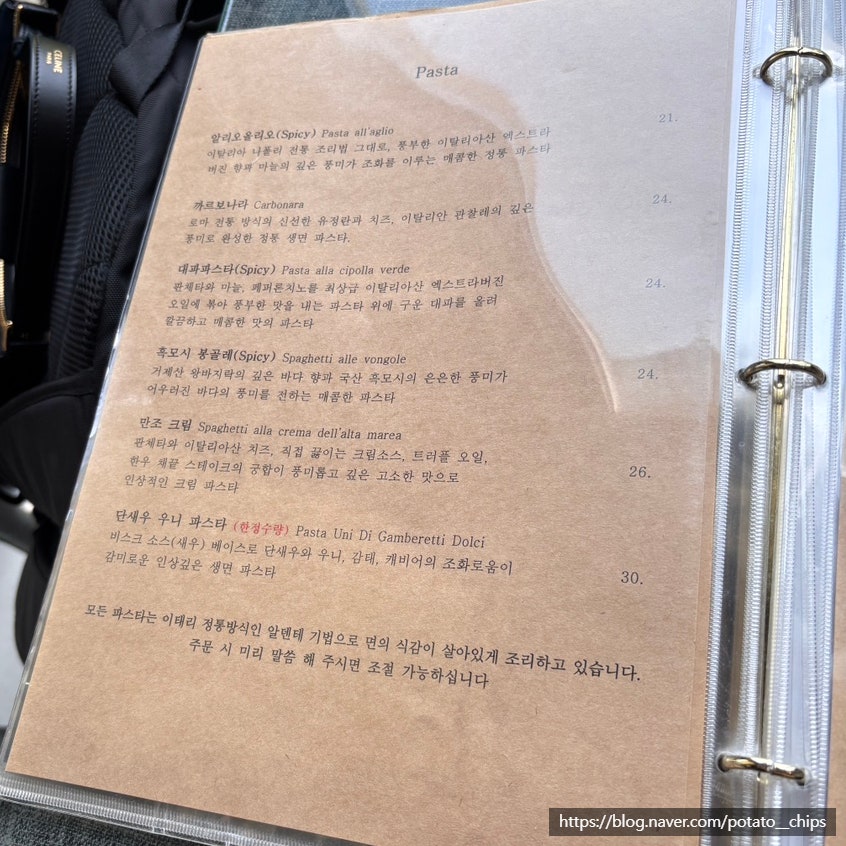 CELINE
Pasta
알리오올리오(Spicy) Pasta all'aglio 21.
이탈리아 나폴리 전통 조리법 그대로, 풍부한 이탈리아산 엑스트라
버진 향과 마늘의 깊은 풍미가 조화를 이루는 매콤한 정통 파스타
까르보나라 Carbonara 24.
로마 전통 방식의 신선한 유정란과 치즈, 이탈리안 관찰레의 깊은
풍미로 완성한 정통 생면 파스타.
대파파스타(Spicy) Pasta alla cipolla verde
판체타와 마늘, 페퍼론치노를 최상급 이탈리아산 엑스트라버진 24.
오일에 볶아 풍부한 맛을 내는 파스타 위에 구운 대파를 올려
깔끔하고 매콤한 맛의 파스타
흑모시 봉골레(Spicy) Spaghetti alle vongole
거제산 왕바지락의 깊은 바다 향과 국산 흑모시의 은은한 풍미가 24.
어우러진 바다의 풍미를 전하는 매콤한 파스타
만조 크림 Spaghetti alla crema dell'alta marea
판체타와 이탈리아산 치즈, 직접 끓이는 크림소스, 트러플 오일,
한우 채끝 스테이크의 궁합이 풍미롭고 깊은 고소한 맛으로 26.
인상적인 크림 파스타
단새우 우니 파스타 (한정수량) Pasta Uni Di Gamberetti Dolci
비스크 소스(새우) 베이스로 단새우와 우니, 감태, 캐비어의 조화로움이
감미로운 인상깊은 생면 파스타 30.
모든 파스타는 이태리 정통방식인 알덴테 기법으로 면의 식감이 살아있게 조리하고 있습니다.
주문 시 미리 말씀 해 주시면 조절 가능하십니다
https://blog.naver.com/potato__chips